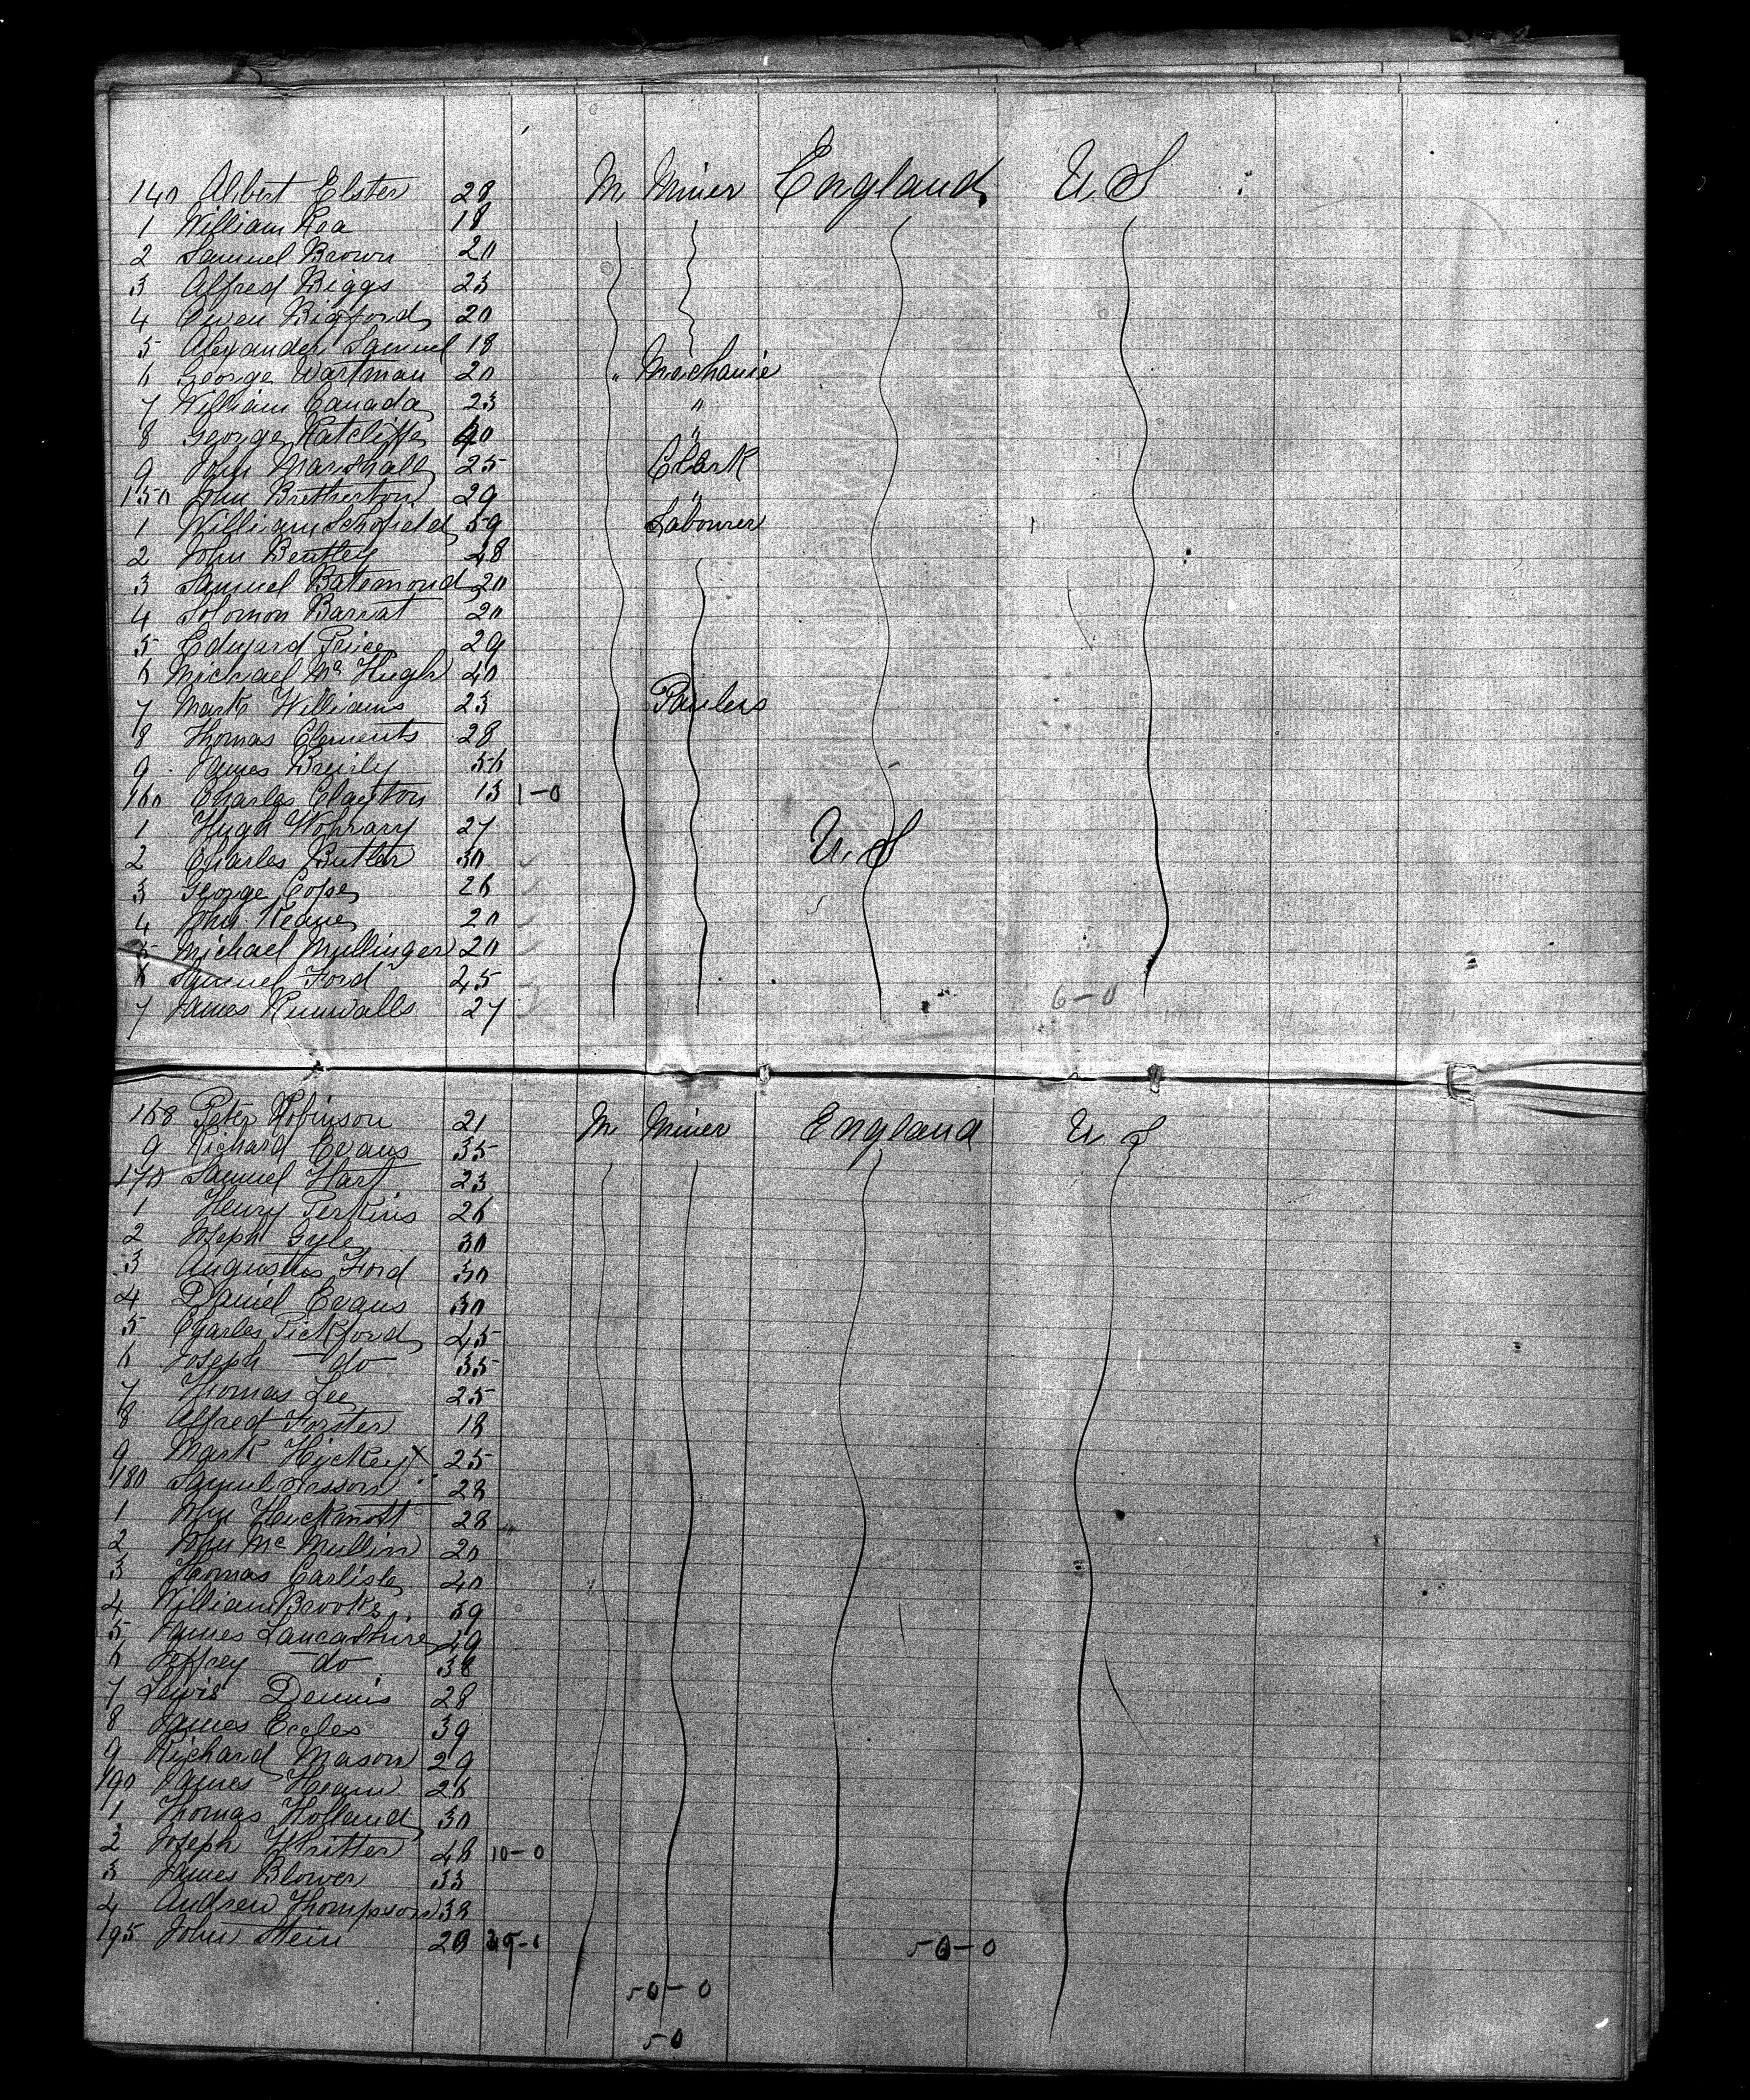 140 Albert Elster 28 M Miner England U.S
1 William Rea 18
2 Samuel Brown 20
3 Alfred Biggs 23
4 Owen Bigford 20
5 Alexander Samuel 18
6 George Wartman 20 " Mechanic
7 William Canada 23 "
8 George Ratcliffe 40 "
9 John Marshall 25 Clark
150 John Bretherton 29 "
1 William Schofield 59 Labourer
2 John Bentley 48
3 Samuel Batemond 20
4 Solomon Barrat 20
5 Edward Price 29
6 Michael Mc Hugh 40
7 Mark Williams 23
8 Thomas Clements 28
9 James 56
160 Charles Clayton 13 1-0
1 Hugh 27 U.S
2 Charles Butler 30
3 George Cope 26
4 John Keane 20
5 Michael Mullinger 20
6 Samuel Ford 25
7 James 27 6-0
168 Peter Robinson 21 M Miner England U.S
9 Richard Evans 35
170 Samuel Hart 23
1 Henry Perkins 26
2 Joseph Gyle 30
3 Augustus Ford 30
4 Daniel Evans 30
5 Charles Pickford 45
6 Joseph do 35
7 Thomas Lee 25
8 Alfred Forster 18
9 Mark Hickey x 25
180 Samuel 28
1 Wm Huckmott 28
2 John Mc Mullin 20
3 Thomas Carlisle 40
4 William Brooks 39
5 James Lancashire 49
6 Jeffrey do 38
7 Lewis Dennis 28
8 James Eccles 39
9 Richard Mason 29
190 James 26
1 Thomas Holland 30
2 Joseph Whritter 48 10-0
3 James Blower 33
4 Andrew Thompson 38
195 John Stein 29 50-0
50-0
50